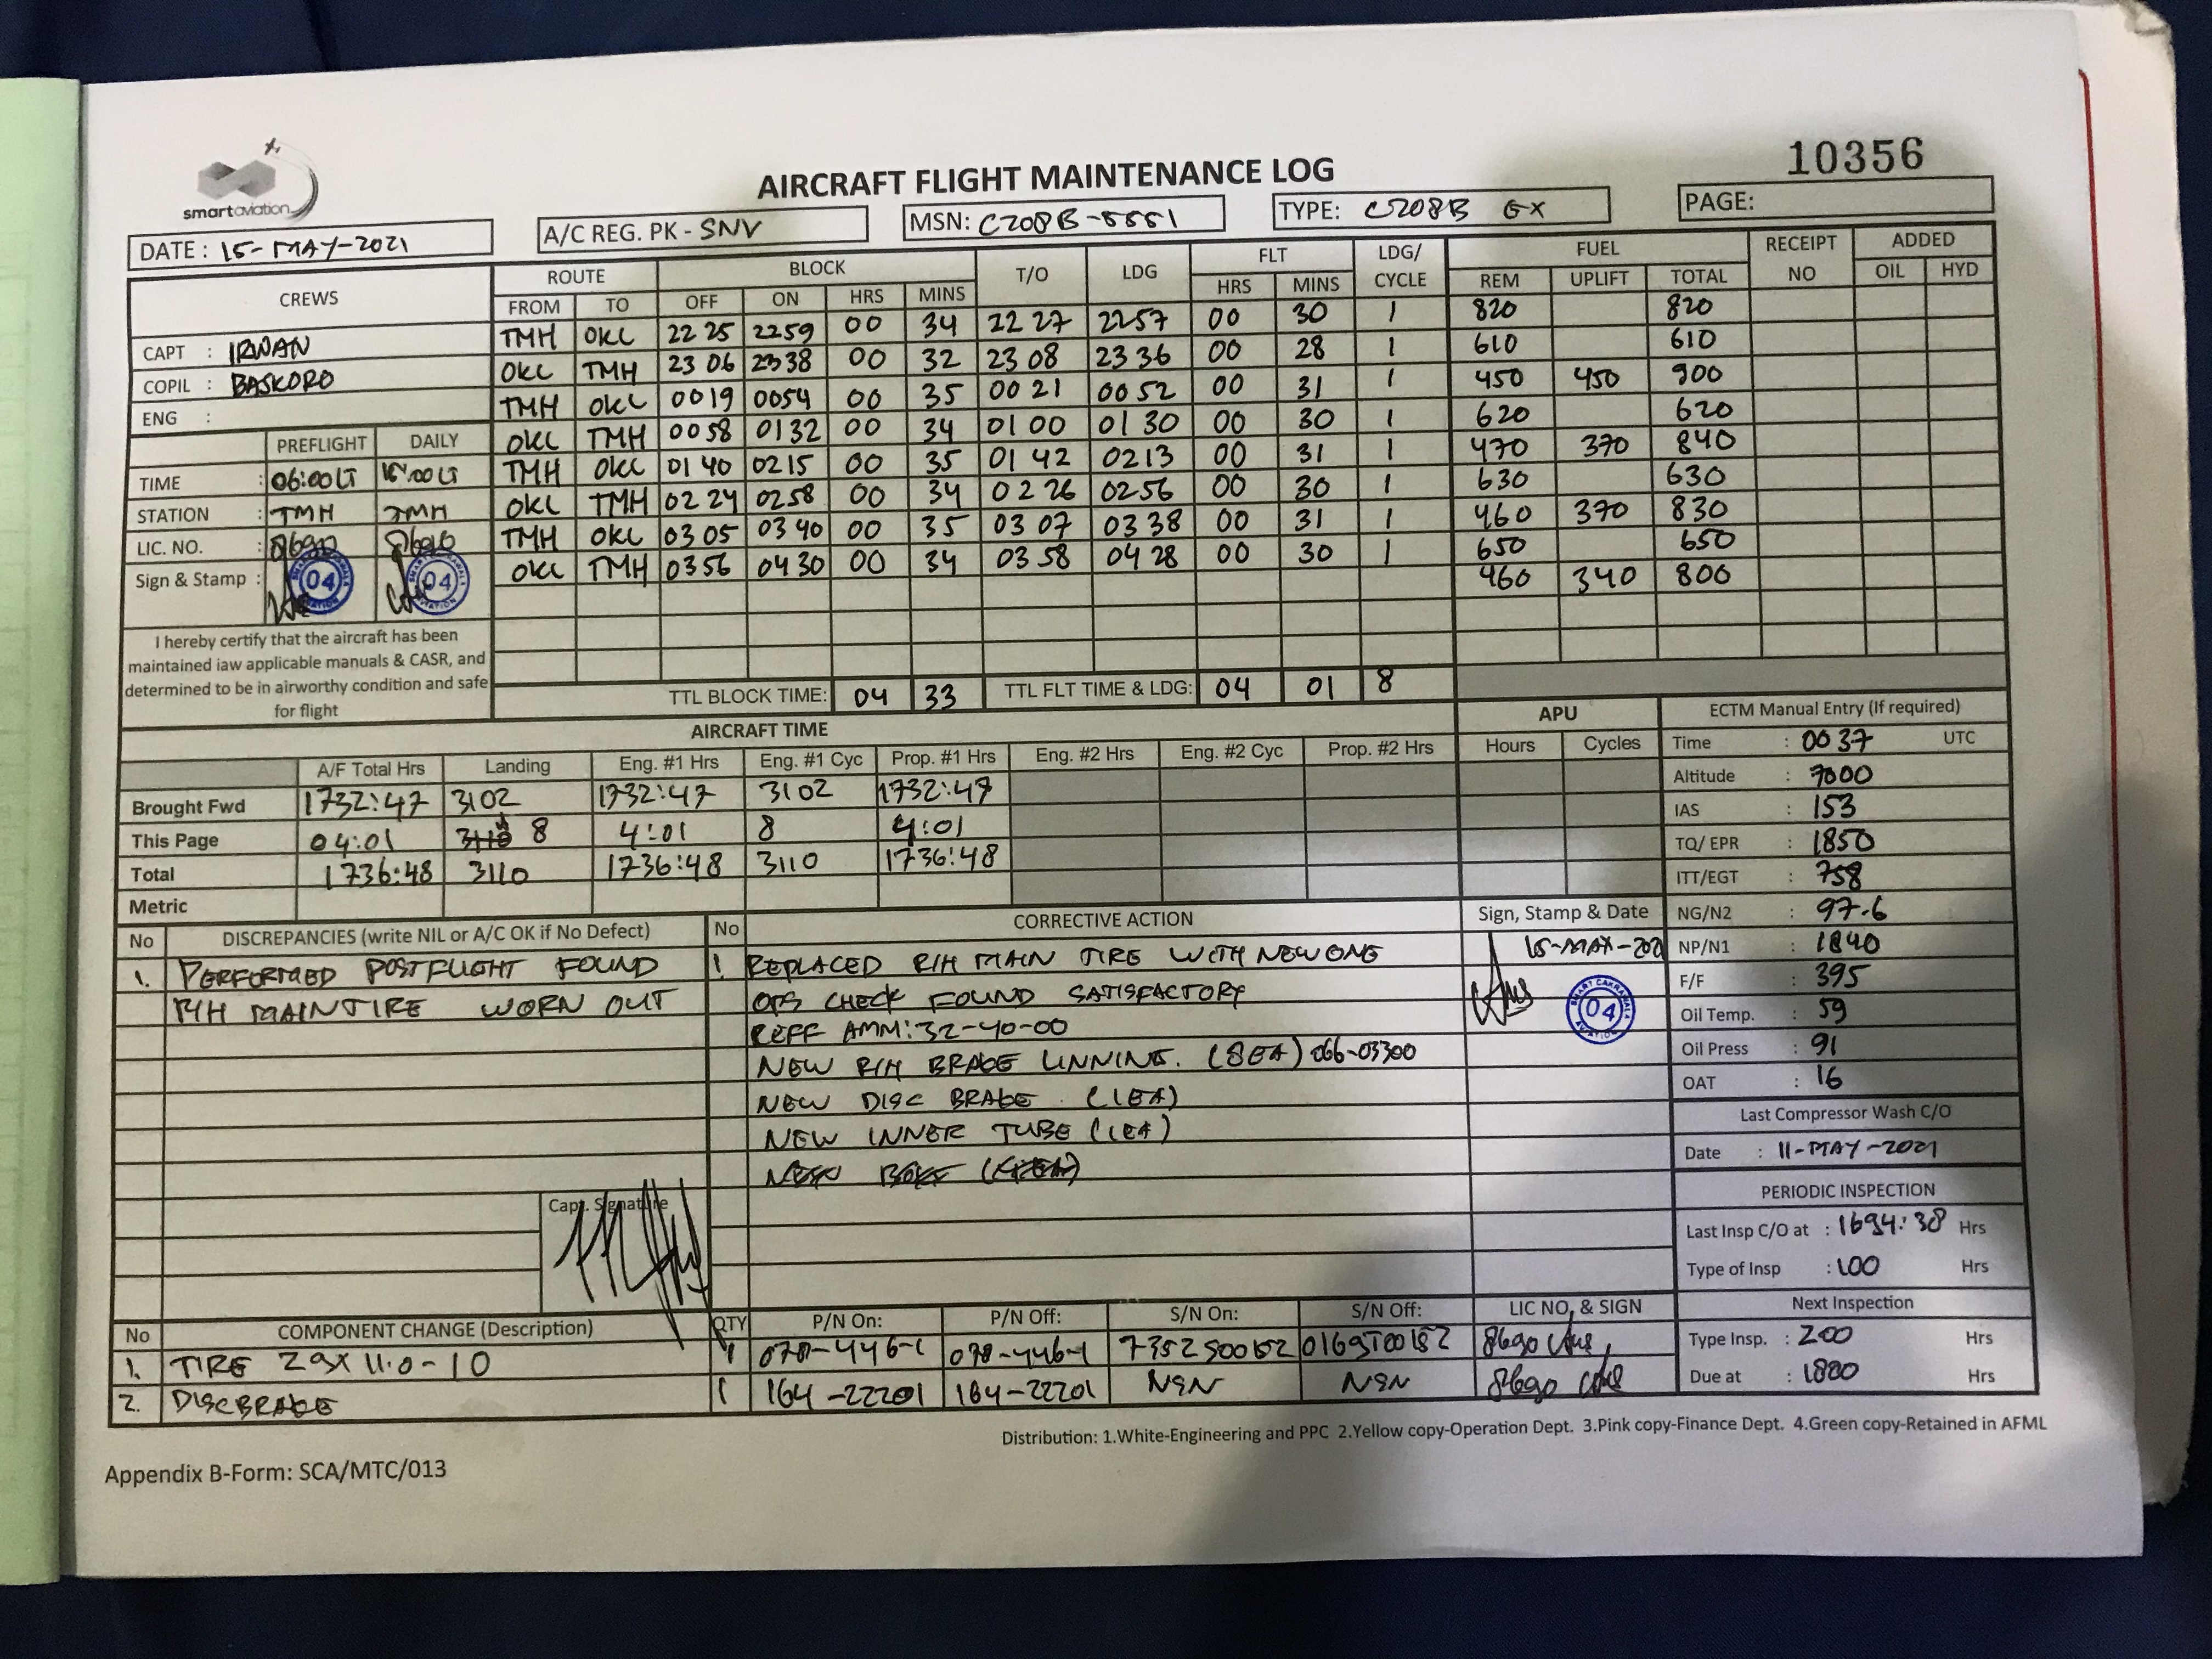 smartaviation
AIRCRAFT FLIGHT MAINTENANCE LOG
10356
DATE : 15-MAY-2021
A/C REG. PK - SNV
MSN: C208B-5551
TYPE: C208B GX
PAGE:
CREWS
ROUTE BLOCK T/O LDG FLT LDG/ CYCLE FUEL RECEIPT NO ADDED
FROM TO OFF ON HRS MINS HRS MINS REM UPLIFT TOTAL OIL HYD
TMH OKL 22 25 2259 00 34 22 27 2257 00 30 1 820 820
OKL TMH 23 06 2338 00 32 23 08 23 36 00 28 1 610 610
TMH OKL 0019 0054 00 35 00 21 00 52 00 31 1 450 450 900
OKL TMH 0058 0132 00 34 01 00 01 30 00 30 1 620 620
TMH OKL 01 40 0215 00 35 01 42 0213 00 31 1 470 370 840
OKL TMH 02 24 0258 00 34 02 26 0256 00 30 1 630 630
TMH OKL 03 05 03 40 00 35 03 07 03 38 00 31 1 460 370 830
OKL TMH 0356 04 30 00 34 03 58 04 28 00 30 1 650 650
460 340 800
CAPT : IRWAN
COPIL : BASKORO
ENG :
PREFLIGHT DAILY
TIME : 06:00 LT :00 LT
STATION : TMH TMH
LIC. NO. : 8690 8690
Sign & Stamp : 04 04
I hereby certify that the aircraft has been
maintained iaw applicable manuals & CASR, and
determined to be in airworthy condition and safe
for flight
TTL BLOCK TIME: 04 33 TTL FLT TIME & LDG: 04 01 8
AIRCRAFT TIME
APU
A/F Total Hrs Landing Eng. #1 Hrs Eng. #1 Cyc Prop. #1 Hrs Eng. #2 Hrs Eng. #2 Cyc Prop. #2 Hrs Hours Cycles
Brought Fwd 1732:47 3102 1732:47 3102 1732:47
This Page 04:01 8 4:01 8 4:01
Total 1736:48 3110 1736:48 3110 1736:48
Metric
ECTM Manual Entry (If required)
Time : 00 37 UTC
Altitude : 7000
IAS : 153
TQ/ EPR : 1850
ITT/EGT : 758
NG/N2 : 97.6
NP/N1 : 1840
F/F : 395
Oil Temp. : 59
Oil Press : 91
OAT : 16
Last Compressor Wash C/O
Date : 11-MAY-2021
PERIODIC INSPECTION
Last Insp C/O at : 1694:38 Hrs
Type of Insp : 100 Hrs
Next Inspection
Type Insp. : 200 Hrs
Due at : 1800 Hrs
No DISCREPANCIES (write NIL or A/C OK if No Defect)
1. PERFORMED POSTFLIGHT FOUND
R/H MAIN TIRE WORN OUT
Capt. Signature
No CORRECTIVE ACTION Sign, Stamp & Date
1 REPLACED R/H MAIN TIRE WITH NEW ONE 15-MAY-202
OPS CHECK FOUND SATISFACTORY
REFF AMM: 32-40-00
NEW R/H BRAKE LINNING. (8EA) 066-03300
NEW DISC BRAKE . (1EA)
NEW INNER TUBE (1EA)
SMART CAKRAWALA AVIATION 04
No COMPONENT CHANGE (Description) QTY P/N On: P/N Off: S/N On: S/N Off: LIC NO, & SIGN
1. TIRE 29X 11.0-10 1 078-446-1 078-446-1 8690
2. DISCBRAKE 1 164-22201 164-22201 NSN NSN 8690
Distribution: 1.White-Engineering and PPC 2.Yellow copy-Operation Dept. 3.Pink copy-Finance Dept. 4.Green copy-Retained in AFML
Appendix B-Form: SCA/MTC/013